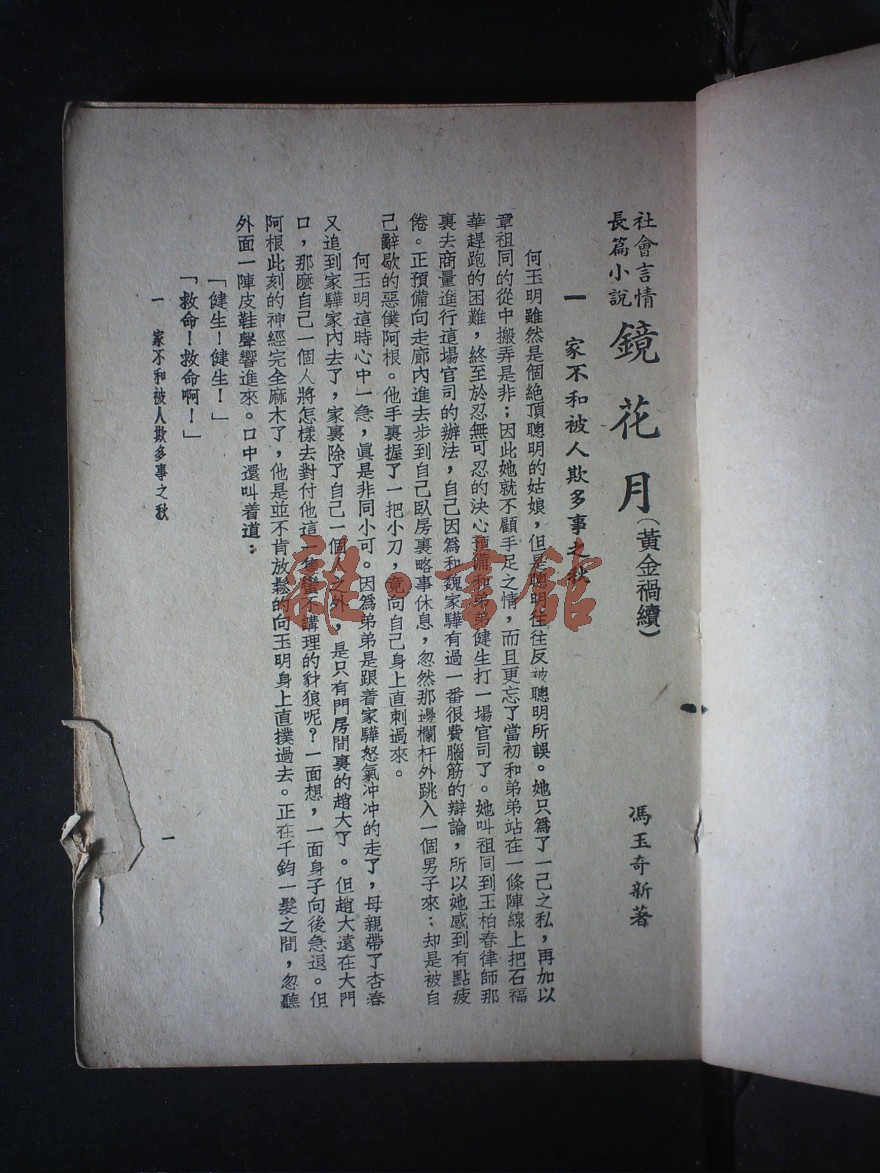 社會言情
長篇小說
鏡花月(黃金禍續)
馮玉奇新著
一　家不和被人欺多事之秋
何玉明雖然是個絶頂聰明的姑娘，但是聰明往往反被聰明所誤。她只爲了一己之私，再加以
章祖同的從中搬弄是非；因此她就不顧手足之情，而且更忘了當初和弟弟站在一條陣線上把石福
華趕跑的困難，終至於忍無可忍的決心預備和弟弟健生打一場官司了。她叫祖同到王柏春律師那
裏去商量進行這場官司的辦法，自己因爲和魏家驊有過一番很費腦筋的辯論，所以她感到有點疲
倦。正預備向走廊內進去步到自己臥房裏略事休息，忽然那邊欄杆外跳入一個男子來；却是被自
己辭歇的惡僕阿根。他手裏握了一把小刀，竟向自己身上直刺過來。
何玉明這時心中一急，眞是非同小可。因爲弟弟是跟着家驊怒氣冲冲的走了，母親帶了杏春
又追到家驊家內去了，家裏除了自己一個人之外，是只有門房間裏的趙大了。但趙大遠在大門
口，那麼自己一個人將怎樣去對付他這一隻蠻不講理的豺狼呢？一面想，一面身子向後急退。但
阿根此刻的神經完全麻木了，他是並不肯放鬆的向玉明身上直撲過去。正在千鈞一髮之間，忽聽
外面一陣皮鞋聲響進來。口中還叫着道：
「健生！健生！」
「救命！救命啊！」
一　家不和被人欺多事之秋
一
雜·書館